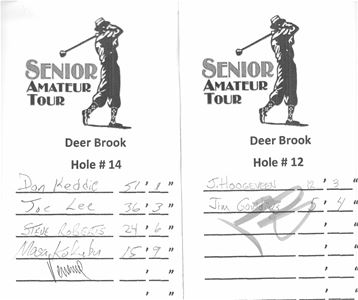 SENIOR
AMATEUR
TOUR
Deer Brook
Hole # 14
Don Keddie 51' 1"
Joe Lee 36' 3"
STEVE ROBERTS 24' 6"
15' 9"
' "
SENIOR
AMATEUR
TOUR
Deer Brook
Hole # 12
J. HOOGEVEEN 12' 3"
Jim 5' 4"
' "
' "
' "